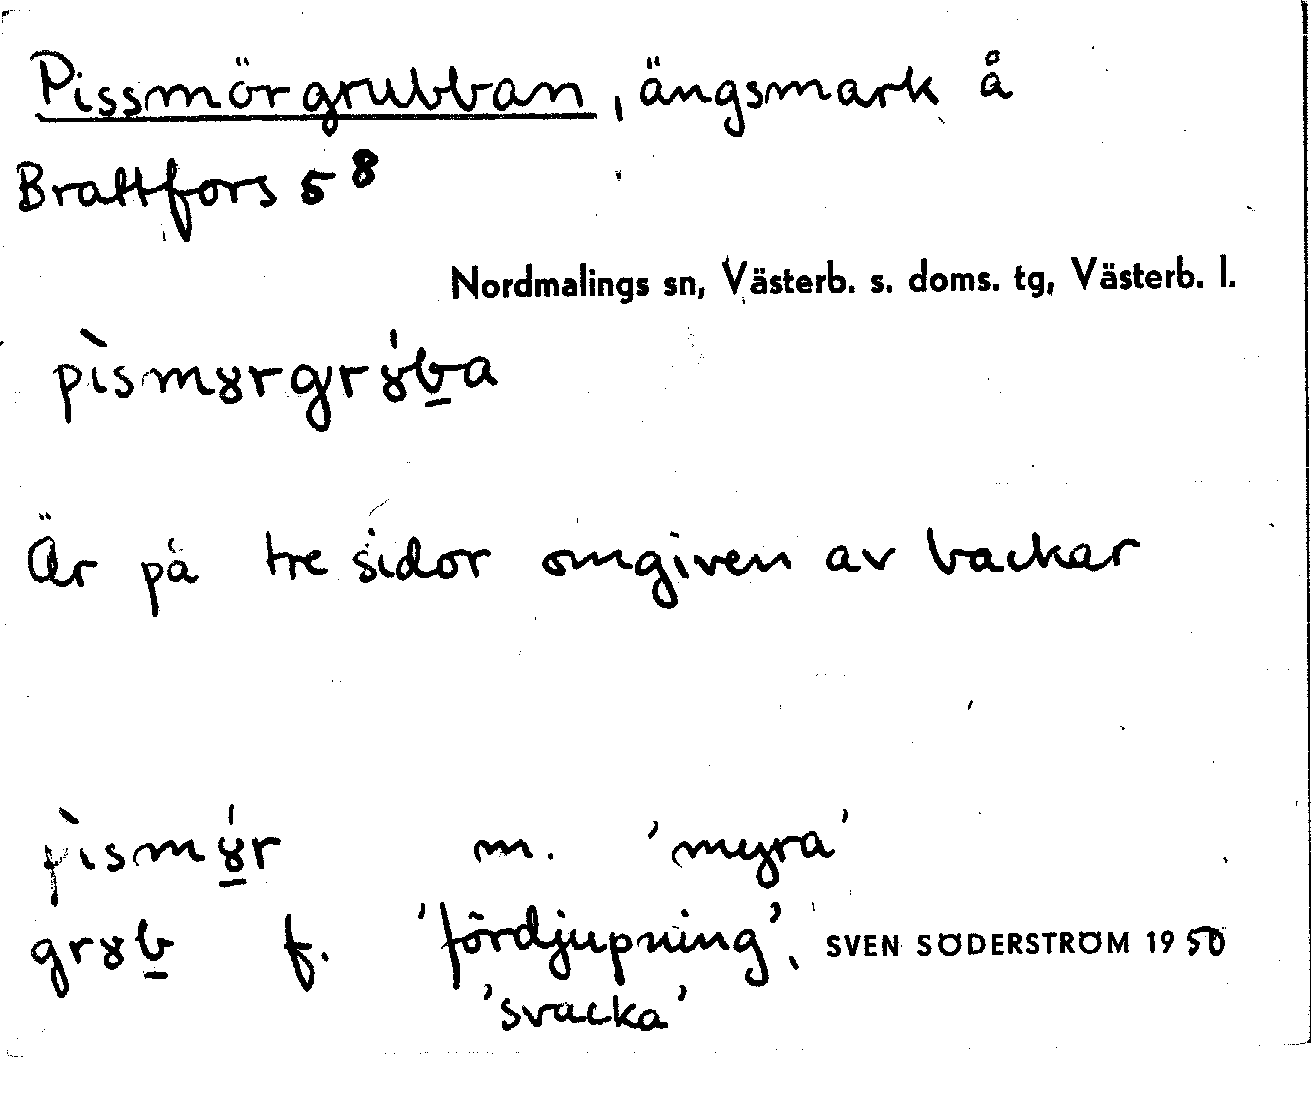 Pissmörgrubban, ängsmark å
Brattfors 5⁸
Nordmalings sn, Västerb. s. doms. tg, Västerb. l.
pı̀smȣrgrȣ́b̲a
Är på tre sidor omgiven av backar
pı̀smȣ̲́r m. 'myra'
grȣb̲ f. 'fördjupning',
SVEN SÖDERSTRÖM 1950
'svacka'